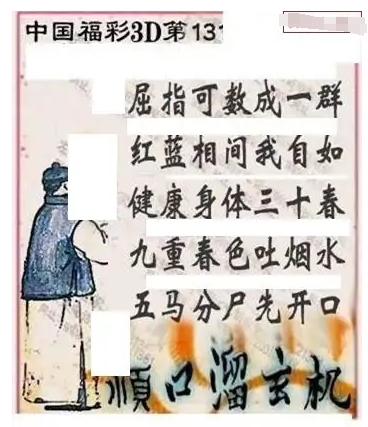 中国福彩3D第131
屈指可数成一群
红蓝相间我自如
健康身体三十春
九重春色吐烟水
五马分尸先开口
順口溜玄机